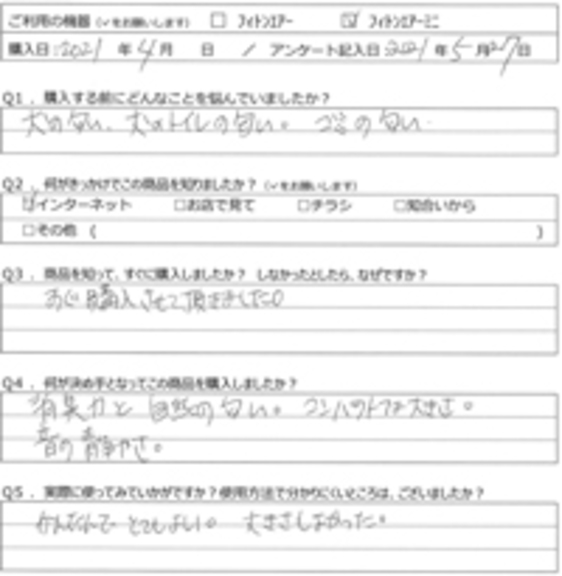 ご利用の機器（✓をお願いします） □ フィトンエアー ☑ フィトンエアーミニ
購入日：2021 年 4 月 日 ／ アンケート記入日：2021 年 5 月 27 日
Q1．購入する前にどんなことを悩んでいましたか？
犬の匂い、犬のトイレの匂い。 ゴミの匂い
Q2．何がきっかけでこの商品を知りましたか？（✓をお願いします）
☑インターネット □お店で見て □チラシ □知合いから
□その他（ ）
Q3．商品を知って、すぐに購入しましたか？ しなかったとしたら、なぜですか？
すぐ購入させて頂きました。
Q4．何が決め手となってこの商品を購入しましたか？
消臭力と自然の匂い。コンパクトな大きさ。
音の静かさ。
Q5．実際に使ってみていかがですか？使用方法で分かりにくいところは、ございましたか？
かんたんで とてもよい。 大きさもよかった。